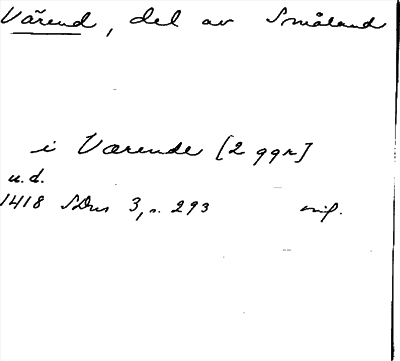 Värend, del av Småland
i Værende [2 ggr]
u.d.
1418 SDns 3, s. 293 orig.